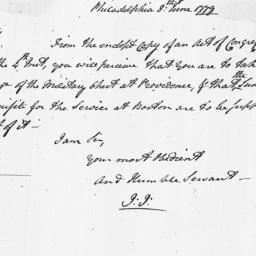 Philadelphia 8.th June 1779
From the enclos'd Copy of an Act of Congre
the 4th Inst, you will perceive that you are to tak
ge of the Military Chest at Providence, & that the Sum
quisite for the Service at Boston are to be supp
t of it —
I am Sir,
Your most Obedient
And Humble Servant —
J: J: